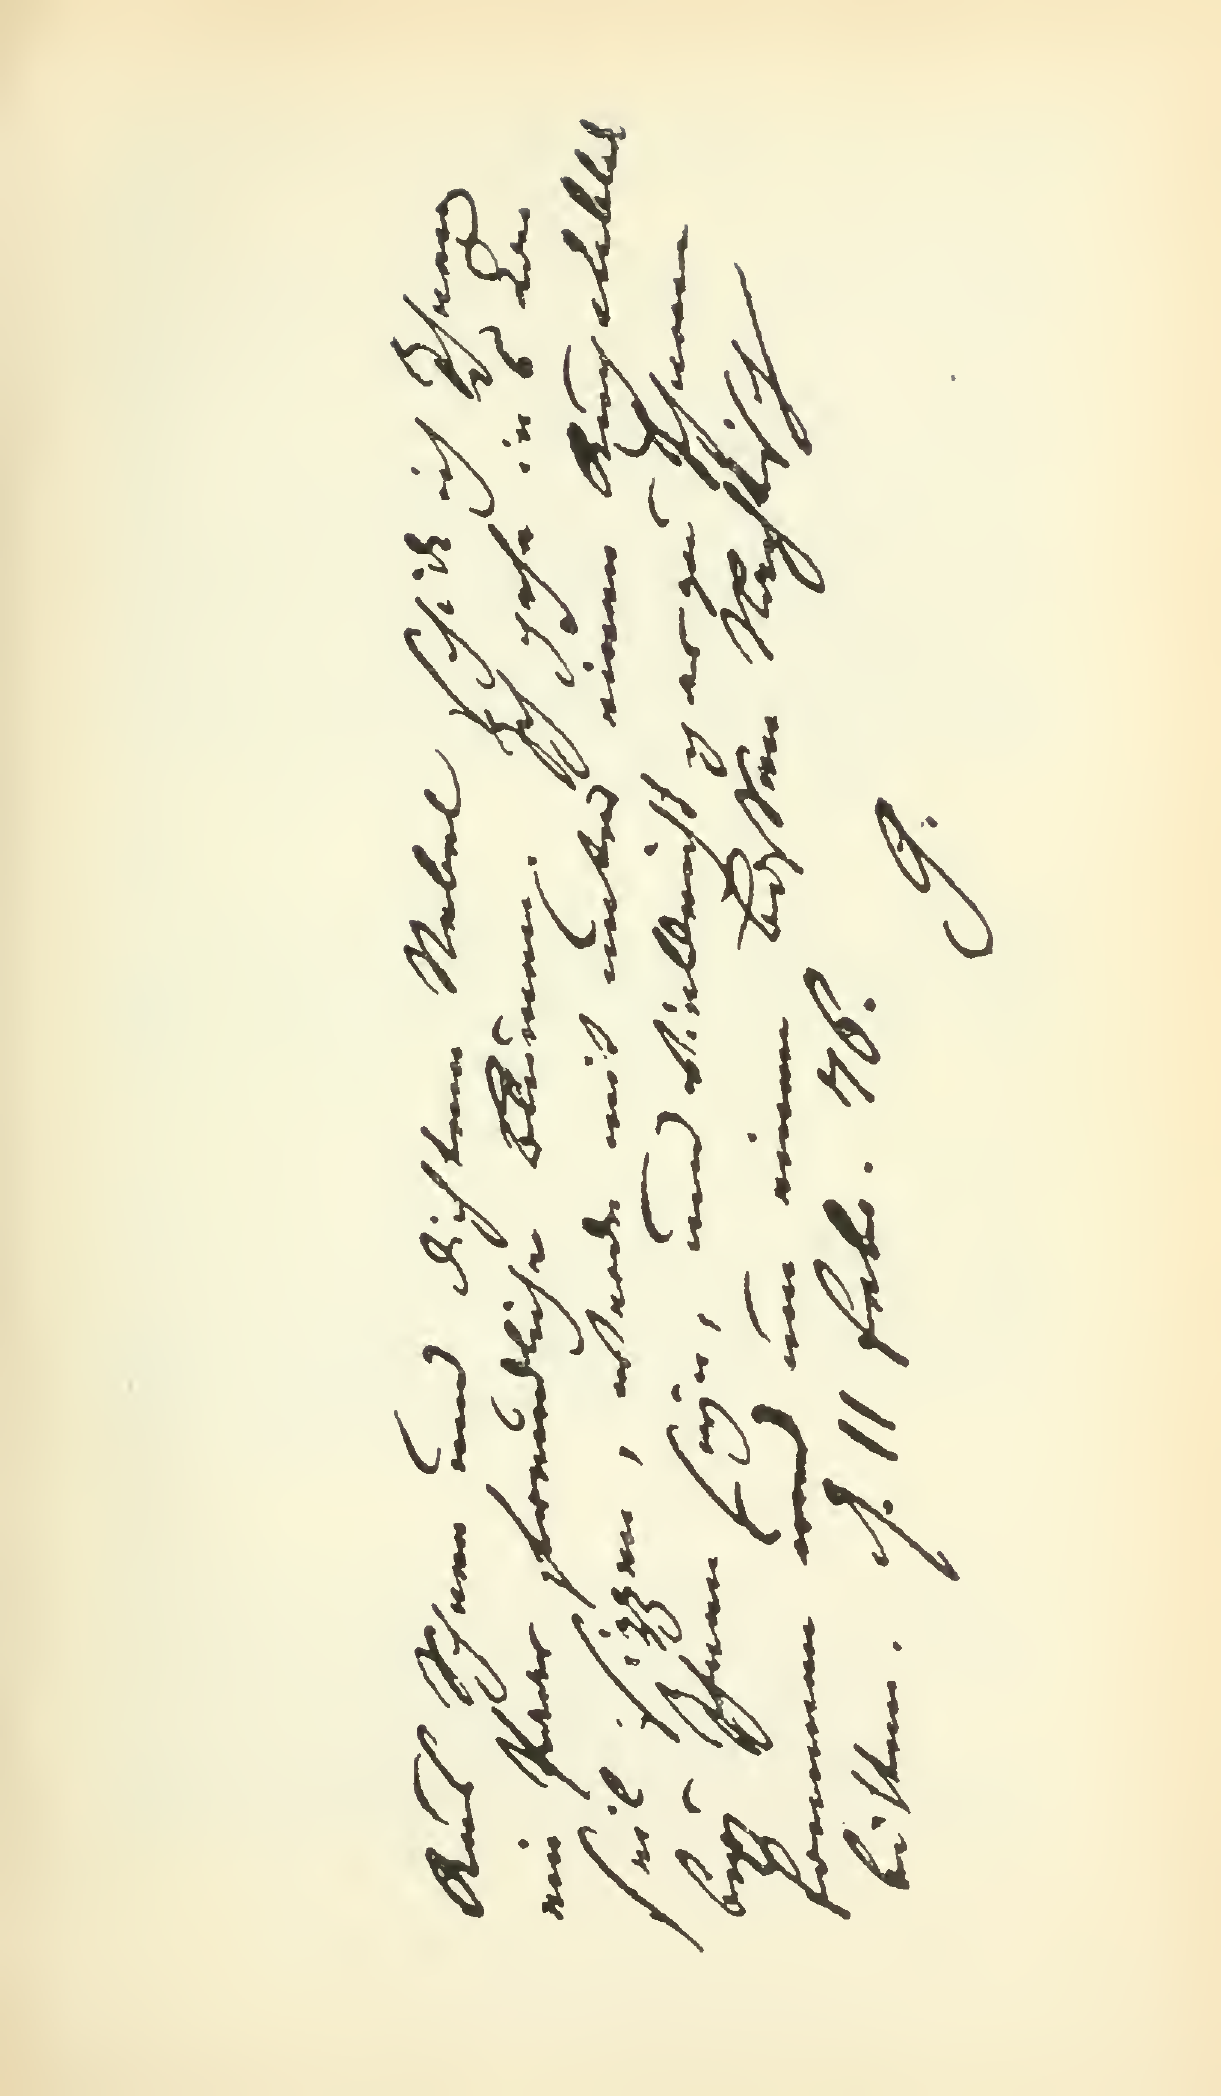 Aus Schnee und dichtem Nebel schick ich Ihnen
ein Paar freundliche Blumen. Ich gehe ins Con
seil izzen, werde mit unter einen Augenblick
bey Ihnen seyn, und vielleicht gar zu Ihnen
kommen und um einen Bissen Nachtisch
bitten. d. 11 Febr. 78.
G.